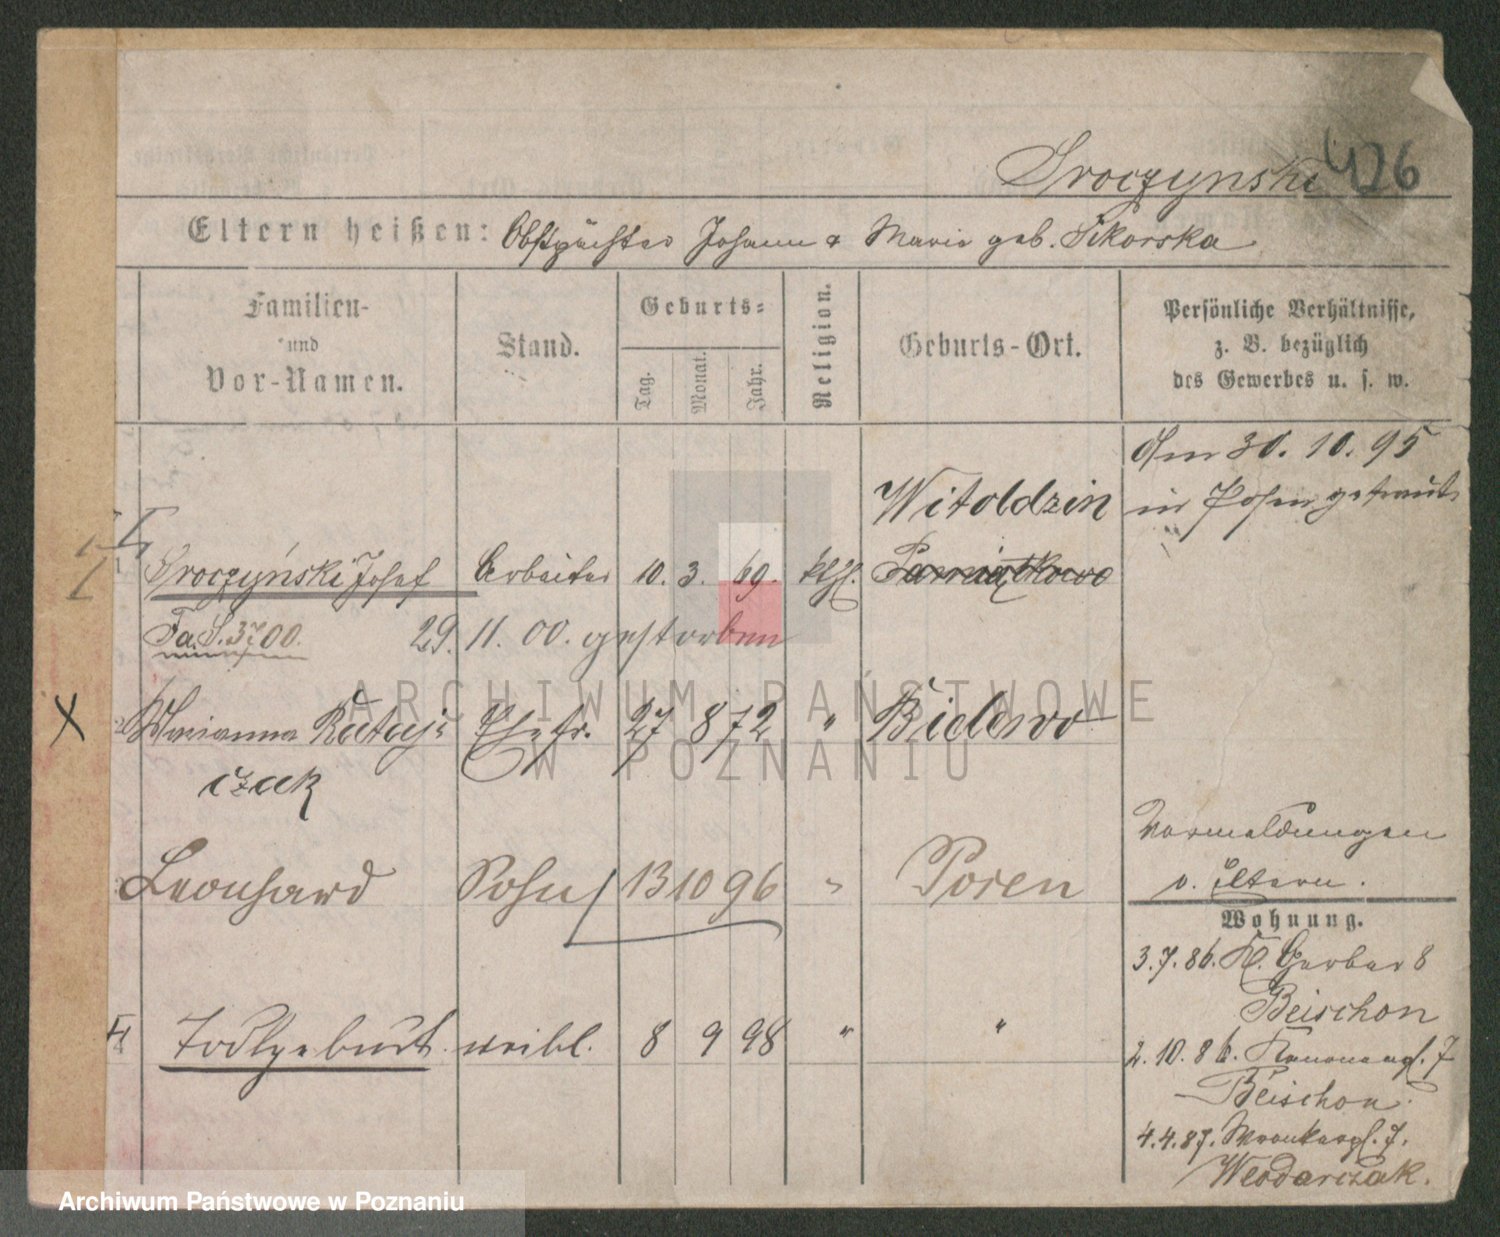 Sroczynski 426
Eltern heißen: Obstpächter Johann & Marie geb. Sikorska
Familien-
und
Vor-Namen.
Stand.
Geburts-
Tag. Monat. Jahr.
Religion.
Geburts-Ort.
Persönliche Verhältnisse,
z. B. bezüglich
des Gewerbes u. s. w.
Am 30. 10. 95
in Posen getraut
Witoldzin
Sroczyński Josef Arbeiter 10. 3. 69. kth. Pamiątkowo
Fa. S. 00. 29. 11. 00. gestorben
Marianna Rataj- Ehefr. 27 8 72 " Bielewo
czak
Vormeldungen
v. Eltern.
Leonhard Sohn 13 10 96 " Posen
Wohnung.
3. 7. 86. Kl. Gerber 8
Beischon
Todtgeburt weibl. 8 9 98 " "
2. 10. 86. 7
Beischon.
4. 4. 87. Wronkerpl. 7.
Wlodarczak.
ARCHIWUM PAŃSTWOWE
W POZNANIU
Archiwum Państwowe w Poznaniu